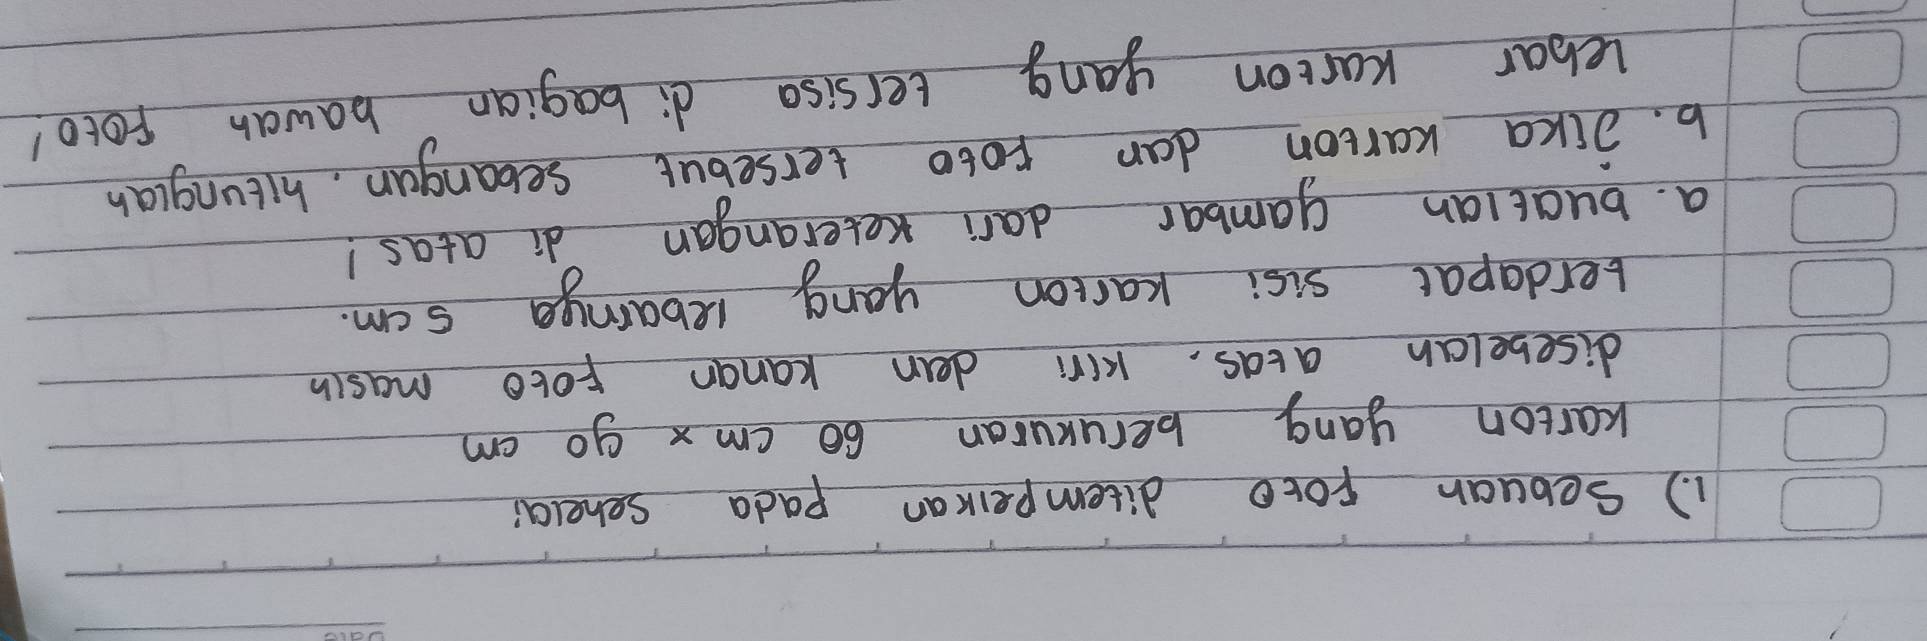 Date
1.) Sebuah Foto ditempelkan pada sehelai
karton yang berukuran 60 cm x 90 cm
disebelah atas, kiri dan kanan Foto masih
terdapat sisi karton yang lebarnya 5 cm.
a. buatlah gambar dari keterangan di atas!
b. Jika karton dan Foto tersebut sebangun. hitunglah
lebar karton yang tersisa di bagian bawah Foto!